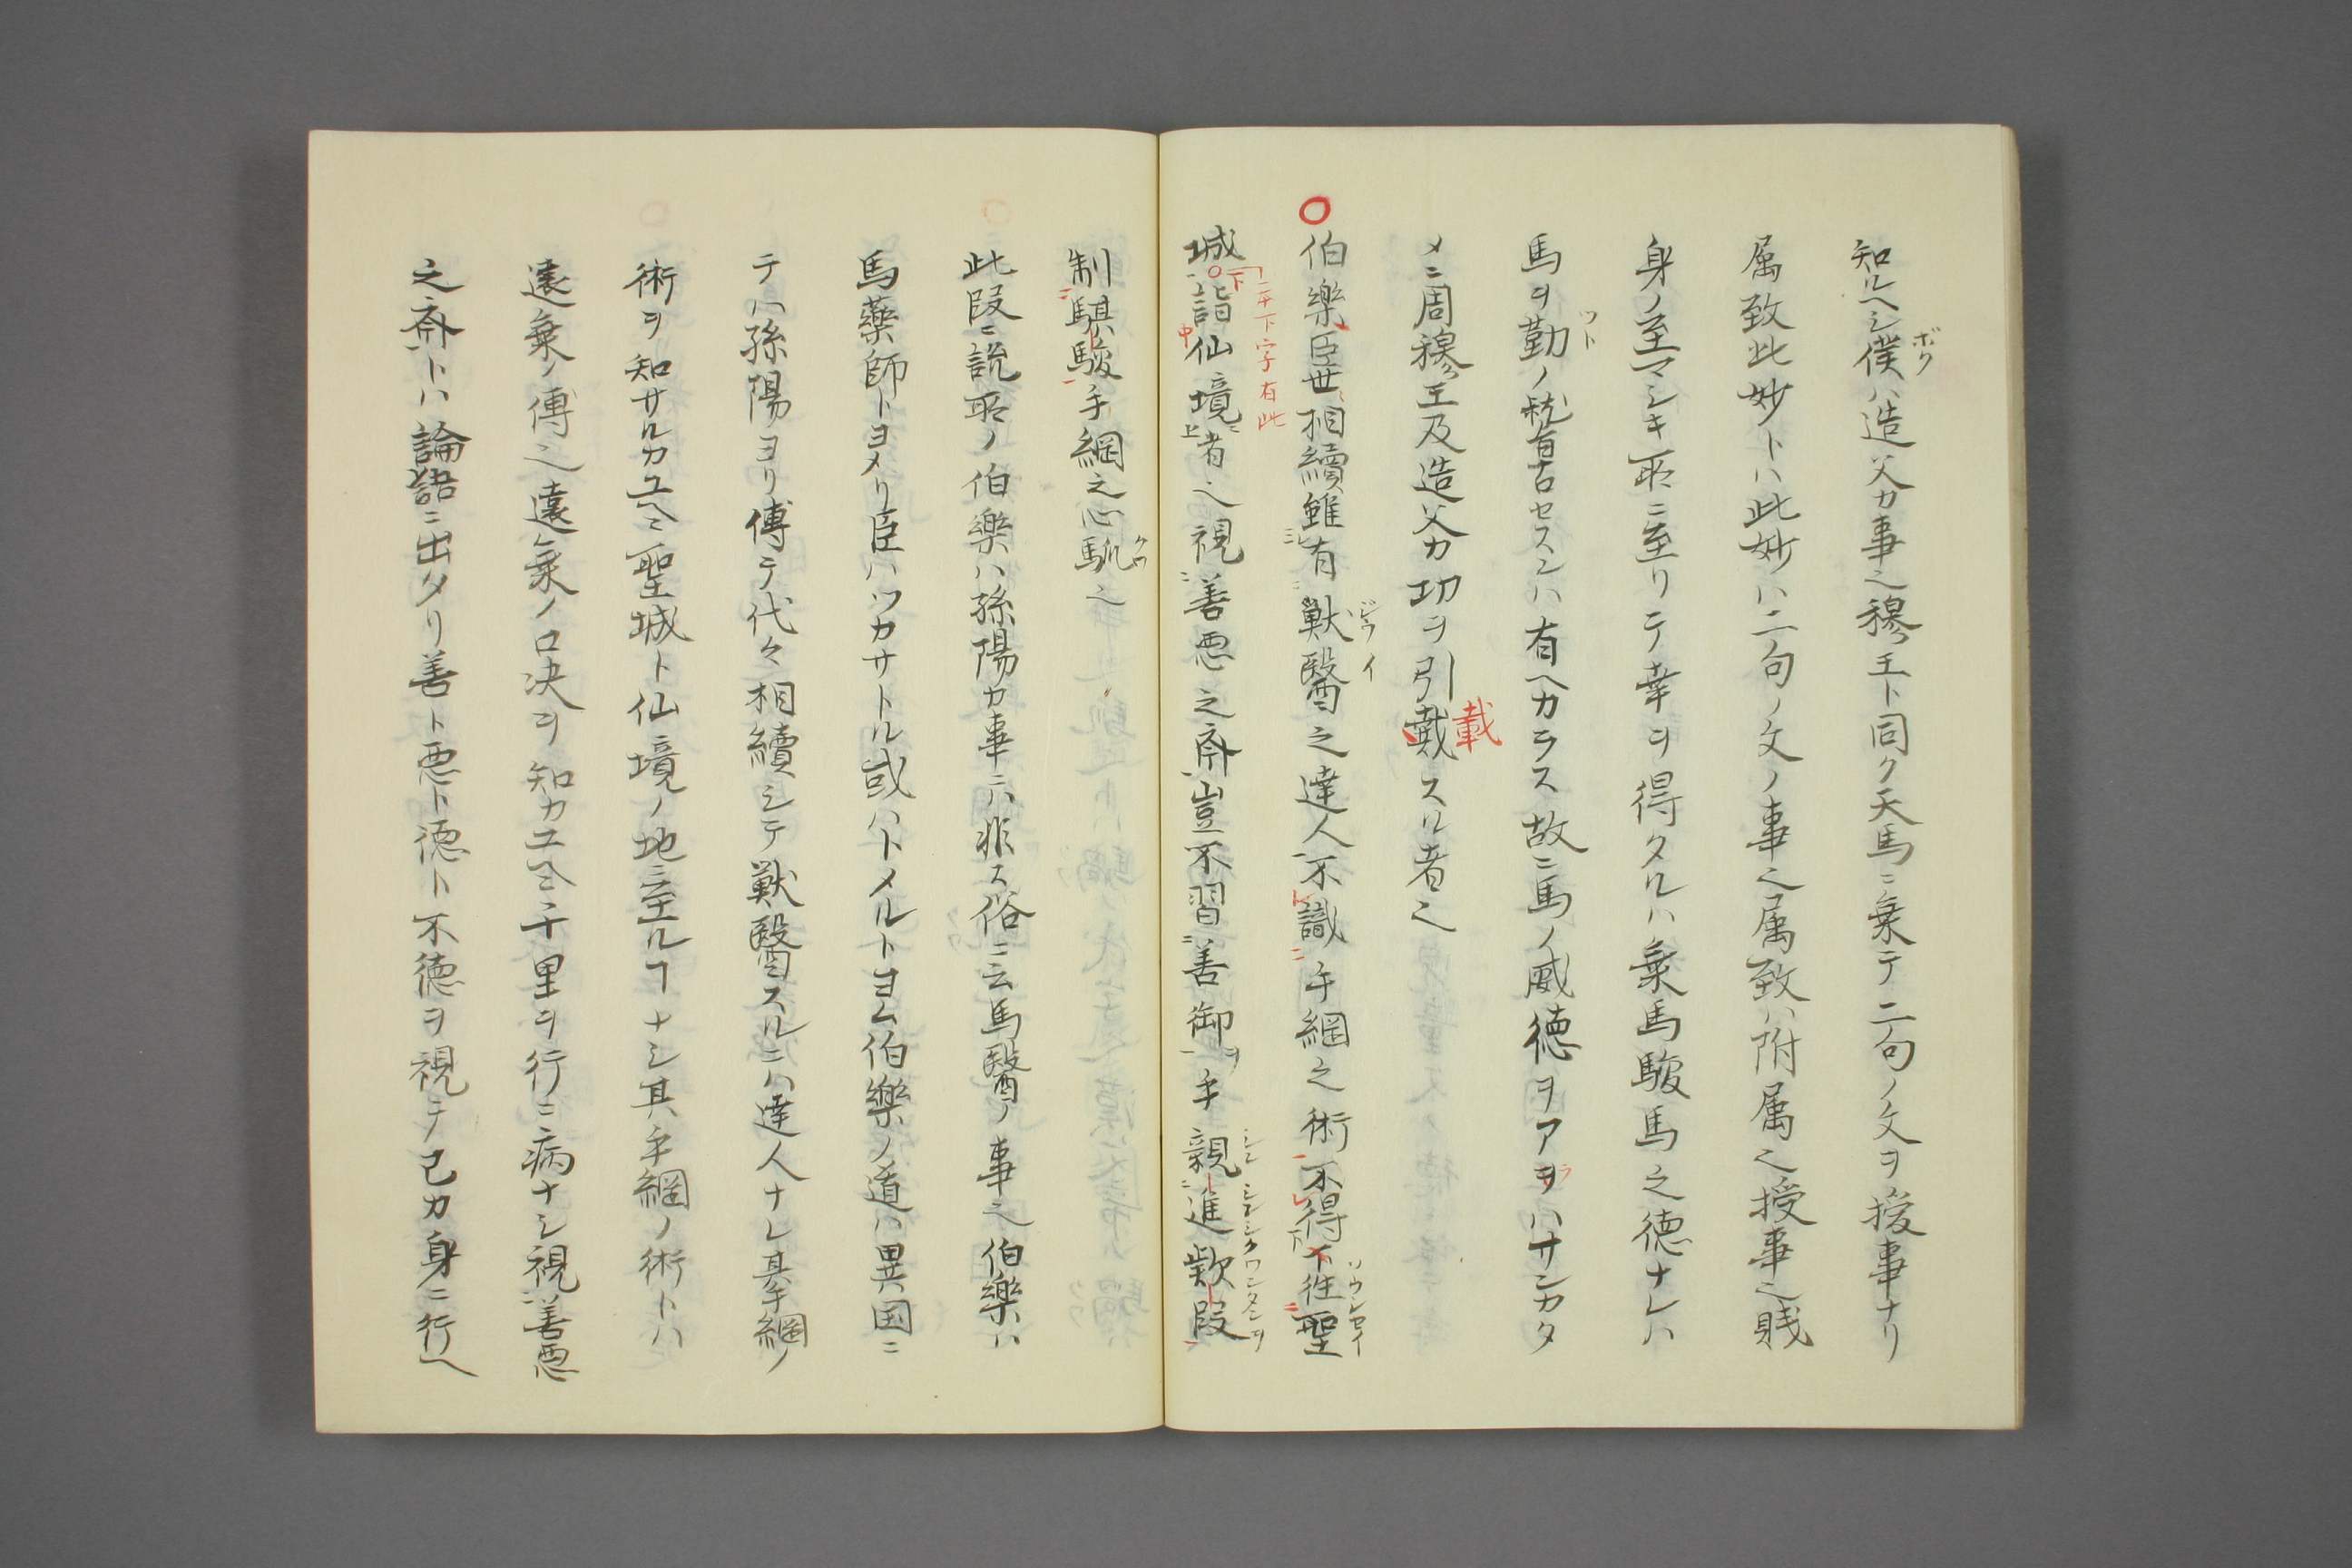 知ルヘシ僕ハ造父カ事也穆王ト同ク天馬ニ乗テ二句ノ文ヲ授事ナリ
ボク
属致此妙トハ此妙ハ二句ノ文ノ事也属致ハ附属也授事也賎
身ノ至マシキ所ニ至リテ幸ヲ得タルハ乗馬駿馬之徳ナレハ
馬ヲ勤ノ稽古セスンハ有ヘカラス故ニ馬ノ威徳ヲアヲハサンカタ
ツト
ラ
メニ周穆王及造父カ切ヲ引戴スル者也
載
○伯樂臣世相續雖有獣醫之達人不識手綱之術不得下往聖
ジウイ
ワウシセイ
二下字有此
城下詣仙境者也視善悪之斎豈不習善御手親進歎段
中
上
シンシンシクワンタンヲ
制騏駿手綱之心馴也
此段ニ説所ノ伯樂ハ孫陽カ事ニハ非ス俗ニ云馬醫ノ事也伯樂ハ
馬藥師トヨメリ臣ハツカサトル或ハトメルトヨム伯樂ノ道ハ異国ニ
テハ孫陽ヨリ傳テ代々相續シテ獣醫スルニハ達人ナレ其手綱ノ
術ヲ知サルカユヘニ聖城ト仙境ノ地ニ至ルヿナシ其手綱ノ術トハ
遠乗ノ傳也遠乗ノ口决ヲ知カユヘニ千里ヲ行ニ病ナシ視善悪
之斎トハ論語ニ出タリ善ト悪ト徳ト不徳ヲ視テ己カ身ニ行ヘ